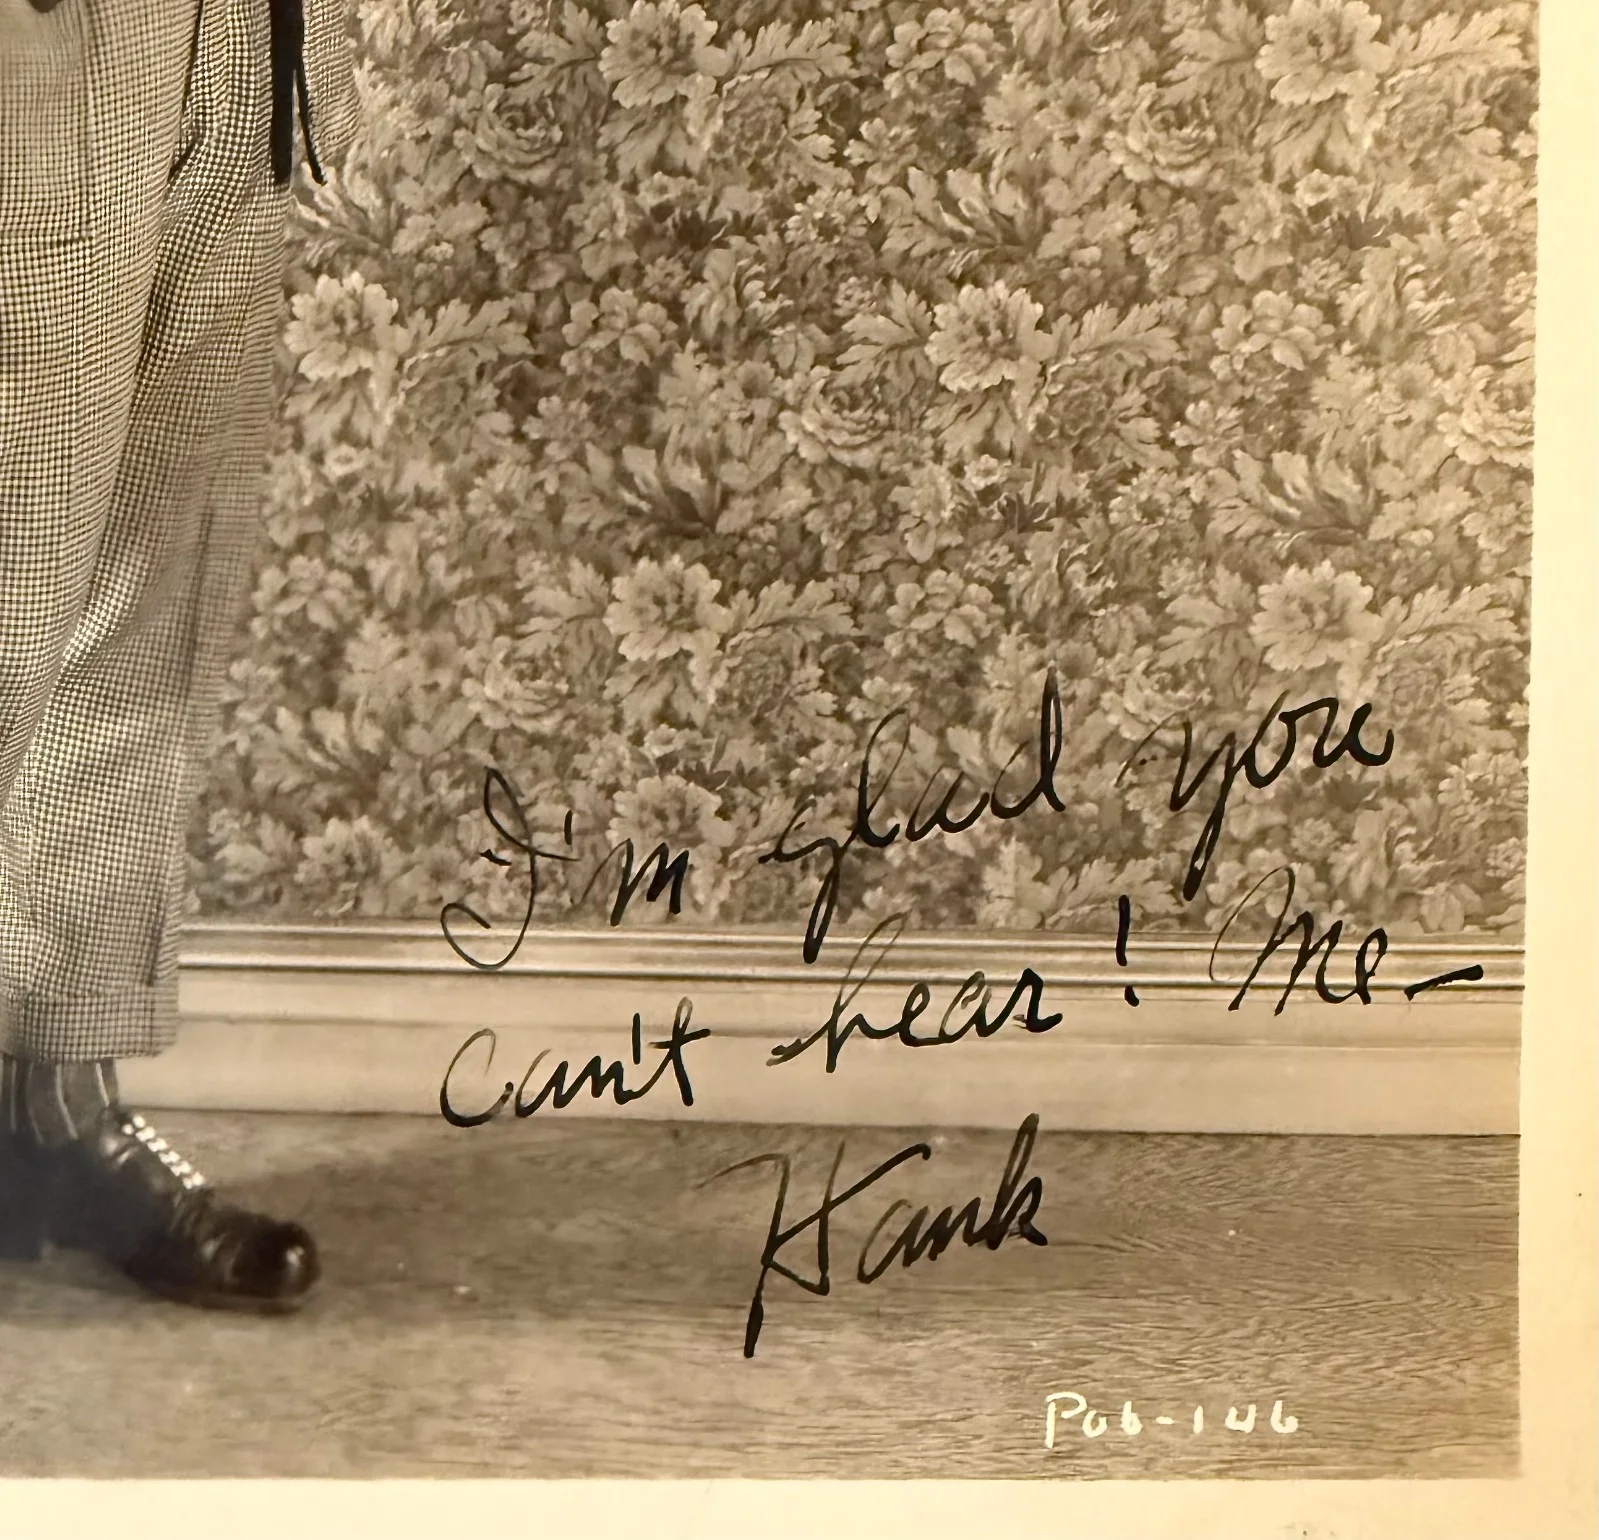 I'm glad you
can't hear! Me—
Hank
P06-146